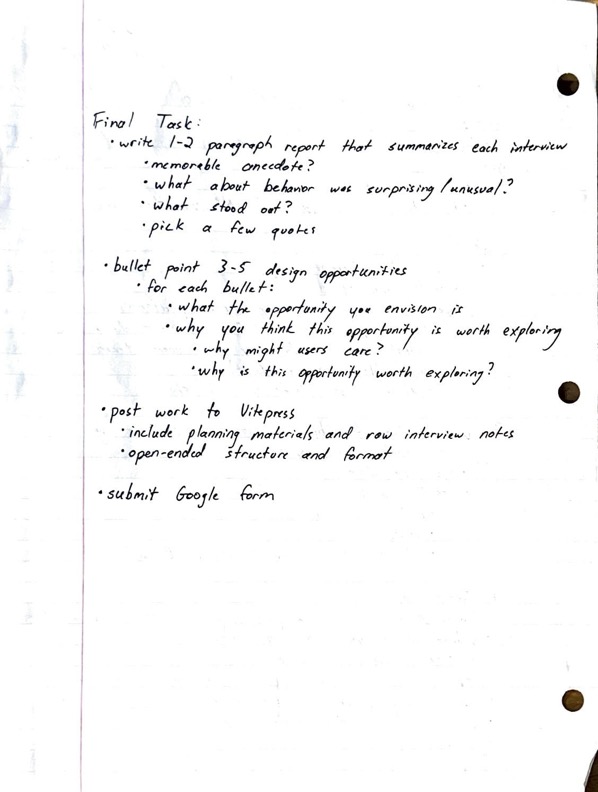 Final Task:
• write 1-2 paragraph report that summarizes each interview
• memorable anecdote?
• what about behavior was surprising/unusual?
• what stood out?
• pick a few quotes
• bullet point 3-5 design opportunities
• for each bullet:
• what the opportunity you envision is
• why you think this opportunity is worth exploring
• why might users care?
• why is this opportunity worth exploring?
• post work to Vitepress
• include planning materials and raw interview notes
• open-ended structure and format
• submit Google form